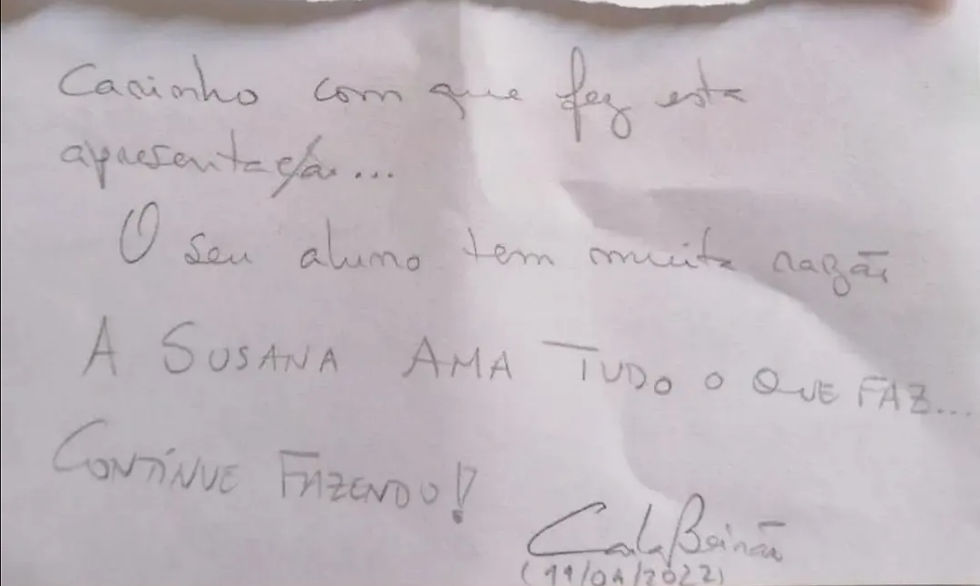 Carinho com que fez esta
apresentação...
O seu aluno tem muita razão
A SUSANA AMA TUDO O QUE FAZ...
CONTÍNUE FAZENDO!
Carla Beirão
(11/04/2022)